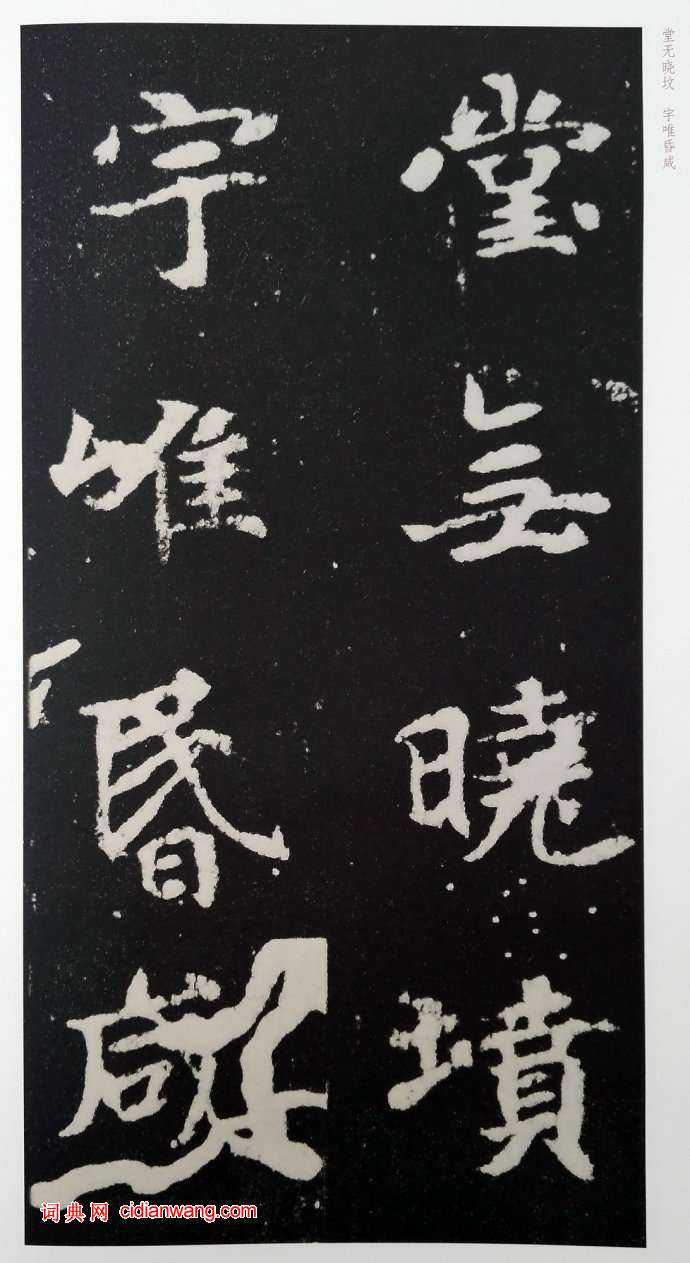 堂无晓坟 宇唯昏咸
堂无曉墳
宇唯昬咸
词典网 cidianwang.com